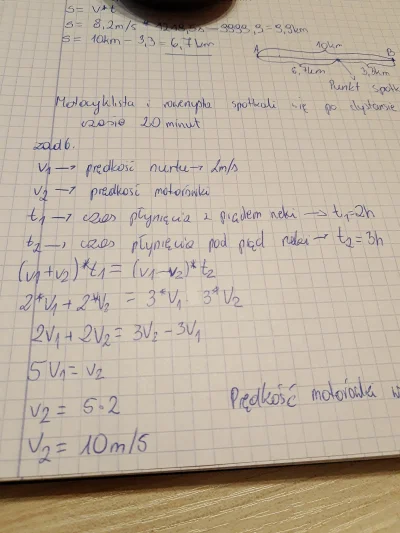 S = V*t
S = 8,2m/s * 1219,5s = 9999,9 = 9,9km
S = 10km - 3,3 = 6,7km
10km
A B
6,7km 3,3km
Punkt
Motocyklista i rowerzysta spotkali się po dystansie
czasie 20 minut
zad 6.
V1 → prędkość nurtu → 2m/s
V2 → prędkość motorówki
t1 → czas płynięcia z prądem rzeki → t1=2h
t2 → czas płynięcia pod prąd rzeki → t2=3h
(V1+V2)*t1 = (V1-V2)*t2
2*V1 + 2*V2 = 3*V1 - 3*V2
2V1 + 2V2 = 3V2 - 3V1
5V1 = V2
V2 = 5·2
V2 = 10m/s
Prędkość motorówki